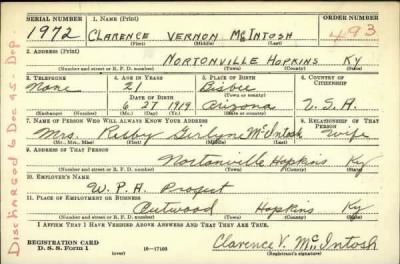 SERIAL NUMBER 1. NAME (Print) ORDER NUMBER
1972 CLARENCE VERNON McINTOSH 493
(First) (Middle) (Last)
2. ADDRESS (Print)
NORTONVILLE HOPKINS KY
(Number and street or R. F. D. number) (Town) (County) (State)
3. TELEPHONE 4. AGE IN YEARS 5. PLACE OF BIRTH 6. COUNTRY OF CITIZENSHIP
None 21 Bisbee
DATE OF BIRTH (Town or county)
6 27 1919 Arizona U.S.A.
(Exchange) (Number) (Mo.) (Day) (Yr.) (State or country)
7. NAME OF PERSON WHO WILL ALWAYS KNOW YOUR ADDRESS 8. RELATIONSHIP OF THAT PERSON
Mrs. Girlyne McIntosh Wife
(Mr., Mrs., Miss) (First) (Middle) (Last)
9. ADDRESS OF THAT PERSON
Nortonville Hopkins Ky
(Number and street or R. F. D. number) (Town) (County) (State)
10. EMPLOYER'S NAME
W.P.A. Project
11. PLACE OF EMPLOYMENT OR BUSINESS
Outwood Hopkins Ky
(Number and street or R. F. D. number) (Town) (County) (State)
I AFFIRM THAT I HAVE VERIFIED ABOVE ANSWERS AND THAT THEY ARE TRUE.
REGISTRATION CARD
D. S. S. Form 1 (over) 16-17105 Clarence V. McIntosh
(Registrant's signature)
Discharged 6 Dec 45 - Dep.